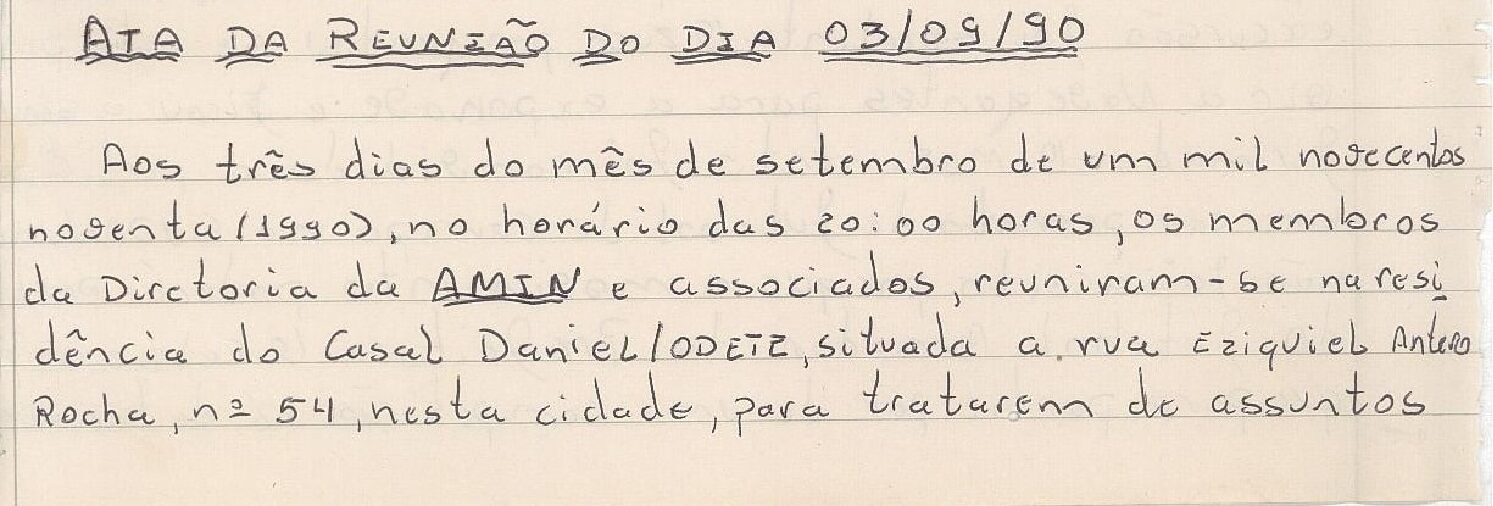 ATA DA REUNIÃO DO DIA 03/09/90
Aos três dias do mês de setembro de um mil novecentos
noventa (1990), no horário das 20:00 horas, os membros
da Diretoria da AMIN e associados, reuniram-se na resi
dência do Casal Daniel/ODETE, situada a rua Eziquiel Antero
Rocha, nº 54, nesta cidade, para tratarem de assuntos